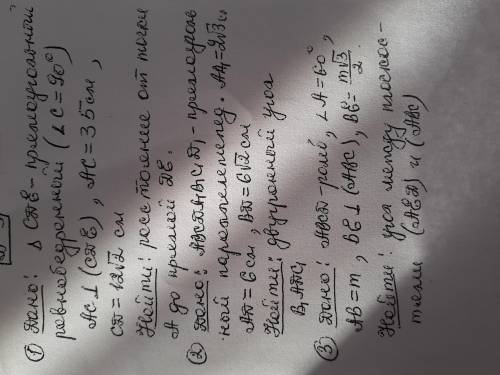 ① Дано: △ CDE - прямоугольный
равнобедренный (∠C = 90°)
AC ⊥ (CDE), AC = 35 см,
CD = 12√2 см
Найти: расстояние от точки
A до прямой DE.
② Дано: ABCDA₁B₁C₁D₁ - прямоуголь
ный параллелепипед. AA₁ = 2√3 см
AD = 6 см, BD = 6√2 см
Найти: двугранный угол
B₁ADC₁
③ Дано: ABCD - ромб, ∠A = 60°
AB = m, BE ⊥ (ABC), BE = m√3/2.
Найти: угол между плоскос-
тями (AED) и (ABC)